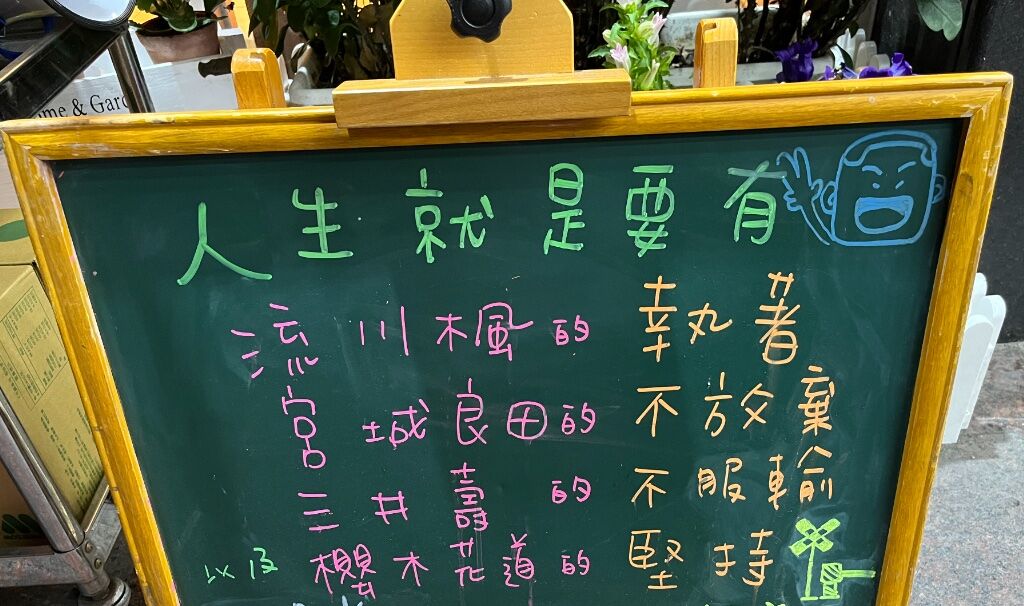 me & Gard
人生就是要有
流川楓的執著
宮城良田的不放棄
三井壽的不服輸
以及櫻木花道的堅持